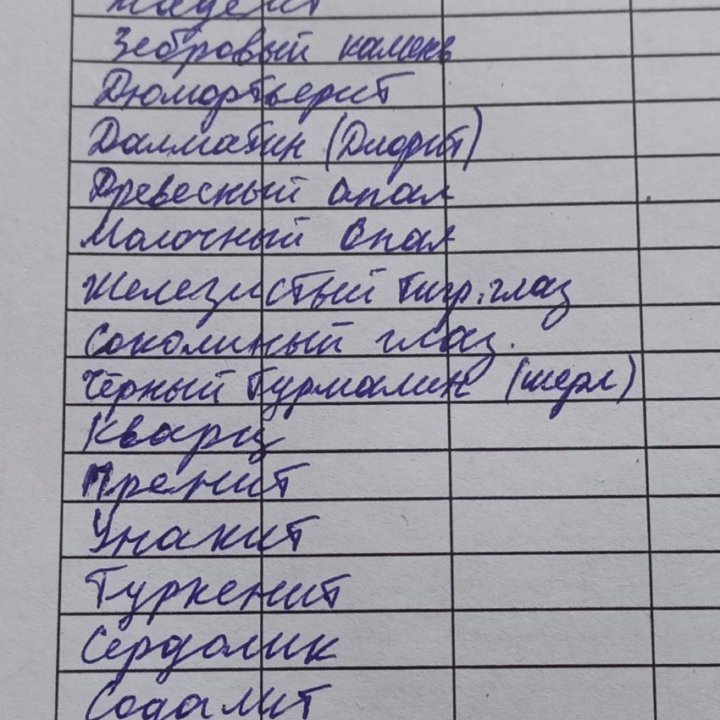 Зебровый камень
Дюмортьерит
Далматин (Диорит)
Древесный опал
Молочный Опал
Железистый тигр. глаз
Соколиный глаз.
Чёрный Турмалин (шерл)
Кварц
Пренит
Унакит
Туркенит
Сердолик
Содалит